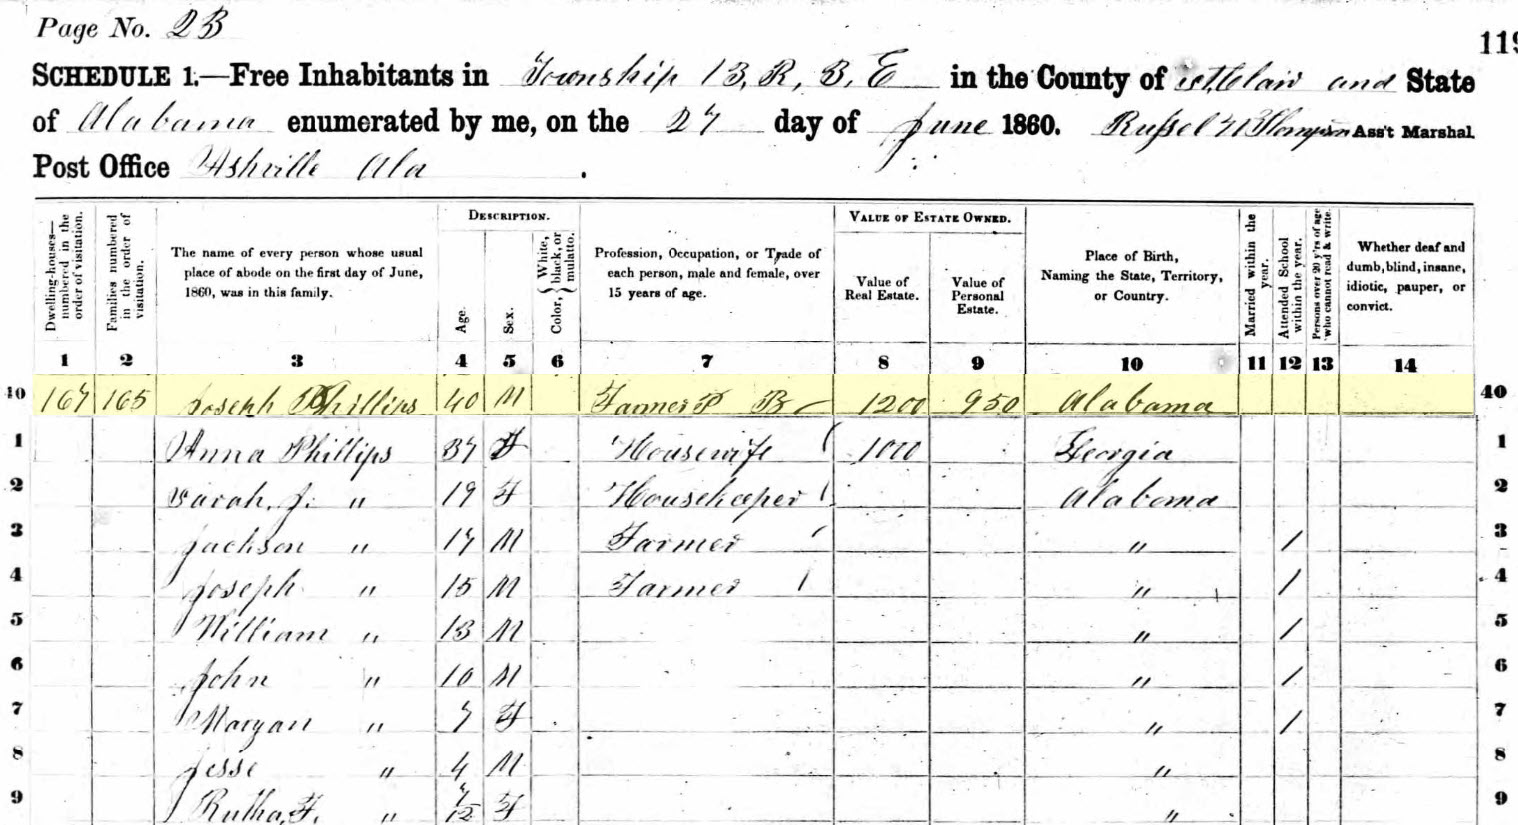 Page No. 23
119
SCHEDULE 1.—Free Inhabitants in Township 13, R, 3, E in the County of St Clair and State
of Alabama enumerated by me, on the 27 day of June 1860. Russel Thompson Ass't Marshal.
Post Office Ashville Ala .
Dwelling-houses—numbered in the order of visitation.
Families numbered in the order of visitation.
The name of every person whose usual place of abode on the first day of June, 1860, was in this family.
DESCRIPTION.
Age.
Sex.
Color, { White, black, or mulatto.
Profession, Occupation, or Trade of each person, male and female, over 15 years of age.
VALUE OF ESTATE OWNED.
Value of Real Estate.
Value of Personal Estate.
Place of Birth, Naming the State, Territory, or Country.
Married within the year.
Attended School within the year.
Persons over 20 y'rs of age who cannot read & write.
Whether deaf and dumb, blind, insane, idiotic, pauper, or convict.
1 2 3 4 5 6 7 8 9 10 11 12 13 14
40 167 165 Joseph Phillips 40 M Farmer 1200 950 Alabama 40
1 Anna Phillips 37 F Housewife 1000 Georgia 1
2 Sarah, J. " 19 F Housekeeper Alabama 2
3 Jackson " 17 M Farmer " / 3
4 Joseph " 15 M Farmer " / 4
5 William " 13 M " / 5
6 John " 10 M " / 6
7 Margan " 7 F " / 7
8 Jesse " 4 M " 8
9 Rutha, F. " 7/12 F " 9